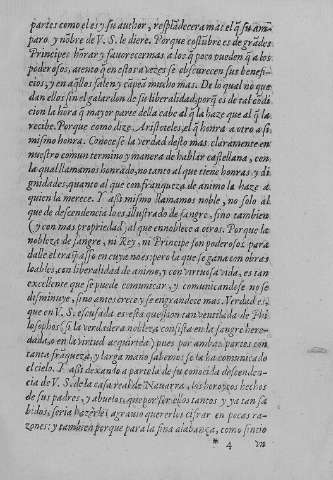 partes como el es y su author, resplãdecera mas el q̃ su am-
paro y nõbre de V. S. le diere. Porque costũbre es de grãdes
Principes hõrar y fauorecer mas a los q̃ poco pueden q̃ a los
poderosos, atento q̃ en estos a vezes se obscurecen sus benefi-
cios, y en aq̃llos salen y cãpeã mucho mas. De lo qual no que
dan ellos sin el galardon de su liberalidad, porq̃ es de tal cõdi
cion la hõra q̃ mayor parte della cabe al q̃ la haze que al q̃ la
recibe. Porque como dize Aristoteles, el q̃ honra a otro a si
mismo honra. Conocese la verdad desto mas claramente en
nuestro comun termino y manera de hablar castellana, con
la qual llamamos honrado, no tanto al que tiene honras y di
gnidades, quanto al que con franqueza de animo la haze a
quien la merece. Y assi mismo llamamos noble, no solo al
que de descendencia lo es illustrado de sangre, sino tambien
(y con mas propriedad) al que ennoblece a otros. Porque la
nobleza de sangre, ni Rey, ni Principe son poderosos para
dalle el traspasso en cuya no es: pero la que se gana con obras
loables, con liberalidad de animo, y con virtuosa vida, es tan
excellente que se puede comunicar, y comunicandose no se
disminuye, sino antes crece y se engrandece mas. Verdad es
que en V. S. escusada es esta question tan ventilada de Phi
losophos (si la verdadera nobleza consista en la sangre here-
dada, o en la virtud acquirida) pues por ambas partes con
tanta frãqueza, y larga mano sabemos se la ha comunicado
el cielo. Y assi dexando a parte la de su conocida descenden-
cia de V. S. de la casa real de Nauarra, los heroycos hechos
de sus padres, y abuelos, que por ser ellos tantos y ya tan sa
bidos, seria hazerles agrauio quererlos cifrar en pocas ra-
zones: y tambien porque para la fina alabança, como sintio
* 4 vn